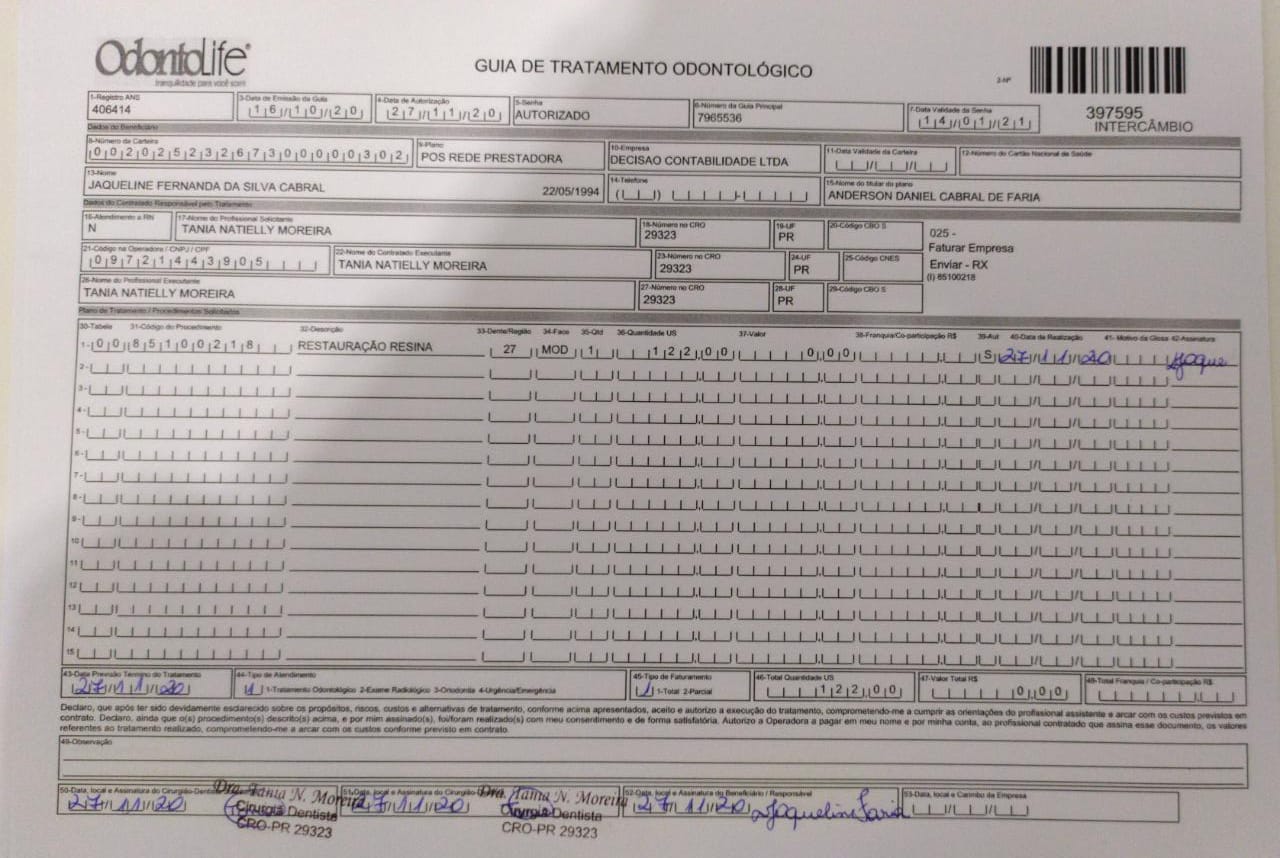 OdontoLife®
tranquilidade para você sorrir
GUIA DE TRATAMENTO ODONTOLÓGICO
2-Nº
397595
INTERCÂMBIO
1-Registro ANS
406414
3-Data de Emissão da Guia
16/10/20
4-Data de Autorização
27/11/20
5-Senha
AUTORIZADO
6-Número da Guia Principal
7965536
7-Data Validade da Senha
14/01/21
Dados do Beneficiário
8-Número da Carteira
00202523267300000302
9-Plano
POS REDE PRESTADORA
10-Empresa
DECISAO CONTABILIDADE LTDA
11-Data Validade da Carteira
12-Número do Cartão Nacional de Saúde
13-Nome
JAQUELINE FERNANDA DA SILVA CABRAL 22/05/1994
14-Telefone
15-Nome do titular do plano
ANDERSON DANIEL CABRAL DE FARIA
Dados do Contratado Responsável pelo Tratamento
16-Atendimento a RN
N
17-Nome do Profissional Solicitante
TANIA NATIELLY MOREIRA
18-Número no CRO
29323
19-UF
PR
20-Código CBO S
025 -
Faturar Empresa
Enviar - RX
(I) 85100218
21-Código na Operadora / CNPJ / CPF
09721443905
22-Nome do Contratado Executante
TANIA NATIELLY MOREIRA
23-Número no CRO
29323
24-UF
PR
25-Código CNES
26-Nome do Profissional Executante
TANIA NATIELLY MOREIRA
27-Número no CRO
29323
28-UF
PR
29-Código CBO S
Plano de Tratamento / Procedimentos Solicitados
30-Tabela 31-Código do Procedimento 32-Descrição 33-Dente/Região 34-Face 35-Qtd 36-Quantidade US 37-Valor 38-Franquia/Co-participação R$ 39-Aut 40-Data de Realização 41- Motivo da Glosa 42-Assinatura
1- 00 85100218 RESTAURAÇÃO RESINA 27 MOD 1 122,00 0,00 S 27/11/20 Jaque
2-
3-
4-
5-
6-
7-
8-
9-
10
11
12
13
14
15
43-Data Previsão Término do Tratamento
27/11/20
44-Tipo de Atendimento
1 1-Tratamento Odontológico 2-Exame Radiológico 3-Ortodontia 4-Urgência/Emergência
45-Tipo de Faturamento
1 1-Total 2-Parcial
46-Total Quantidade US
122,00
47-Valor Total R$
0,00
48-Total Franquia / Co-participação R$
Declaro, que após ter sido devidamente esclarecido sobre os propósitos, riscos, custos e alternativas de tratamento, conforme acima apresentados, aceito e autorizo a execução do tratamento, comprometendo-me a cumprir as orientações do profissional assistente e arcar com os custos previstos em
contrato. Declaro, ainda que o(s) procedimento(s) descrito(s) acima, e por mim assinado(s), foi/foram realizado(s) com meu consentimento e de forma satisfatória. Autorizo a Operadora a pagar em meu nome e por minha conta, ao profissional contratado que assina esse documento, os valores
referentes ao tratamento realizado, comprometendo-me a arcar com os custos conforme previsto em contrato.
49-Observação
50-Data, local e Assinatura do Cirurgião-Dentista
27/11/20
Dra. Tania N. Moreira
Cirurgiã Dentista
CRO-PR 29323
51-Data, local e Assinatura do Cirurgião-
27/11/20
Dra. Tania N. Moreira
Cirurgiã Dentista
CRO-PR 29323
52-Data, local e Assinatura do Beneficiário / Responsável
27/11/20 Jaqueline Faria
53-Data, local e Carimbo da Empresa